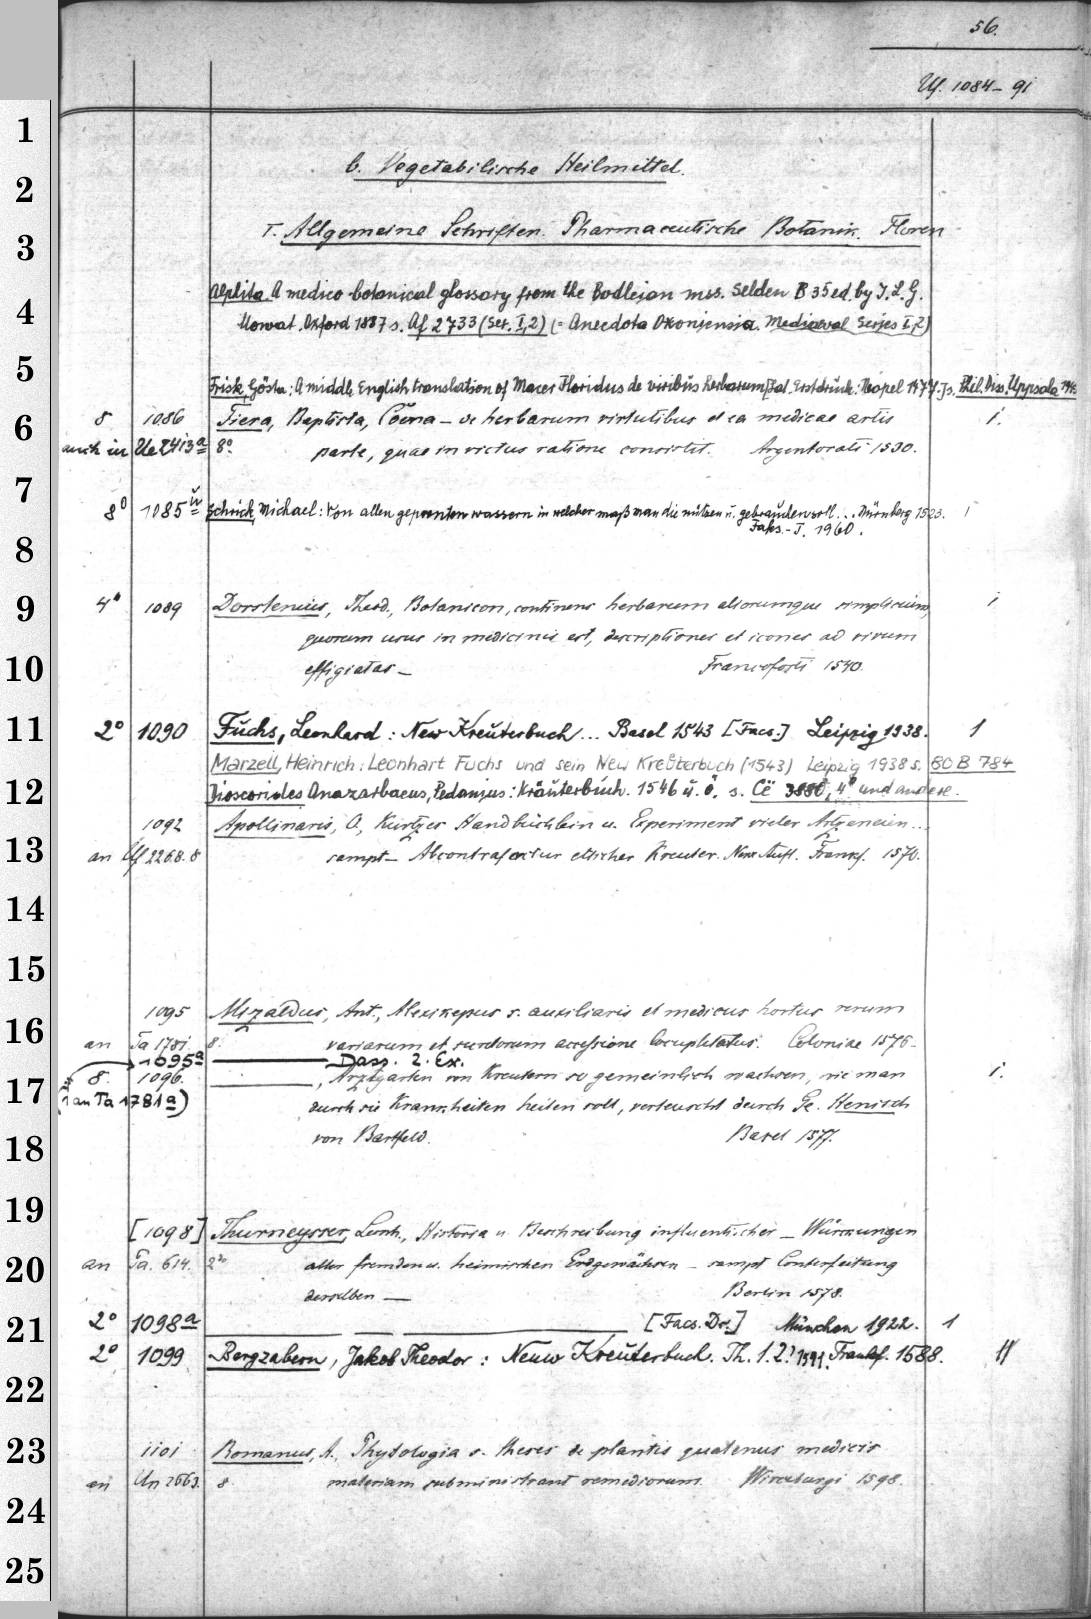 56.
Uf. 1084-91
1
2
3
4
5
6
7
8
9
10
11
12
13
14
15
16
17
18
19
20
21
22
23
24
25
b. Vegetabilische Heilmittel.
I. Allgemeine Schriften. Pharmaceutische Botanik. Floren
Alphita. A medico-botanical glossary from the Bodleian mss. Selden B 35 ed. by J. L. G.
Mowat. Oxford 1887 s. Af 2733 (Ser. I,2) (= Anecdota Oxoniensia. Mediaeval Series I,2)
Frisk, Gösta: A middle English translation of Macer Floridus de viribus herbarum. Erstdruck: Neapel 1477. Phil. Diss. Uppsala
8 1086 Fiera, Baptista, Coena – de herbarum virtutibus et ea medicae artis i.
auch in Ue 2413a 8° parte, quae in victus ratione consistit. Argentorati 1530.
8° 1085 Schrick, Michael: Von allen geprenten wassern in welcher maß man die nützen u. gebrauchen soll... Nürnberg 1523. i
Faks.-T. 1960.
4° 1089 Dorstenius, Theod., Botanicon, continens herbarum aliorumque simplicium, i
quorum usus in medicinis est, descriptiones et icones ad vivum
effigiatas – Francoforti 1540.
2° 1090 Fuchs, Leonhard: New Kreüterbuch... Basel 1543 [Facs.] Leipzig 1938. 1
Marzell, Heinrich: Leonhart Fuchs und sein New Kreüterbuch (1543) Leipzig 1938 s. BO B 784
Dioscorides Anazarbaeus, Pedanius: Kräuterbuch. 1546 u. ö. s. Cë 3880, 4° und andere.
1092 Apollinaris, Q., Kurtzes Handbüchlein u. Experiment vieler Artzeneien...
an Uf 2268. 8 sampt – Abcontrafactur etlicher Kreuter. New Aufl. Frankf. 1570.
1095 Mizaldus, Ant., Alexikepus s. auxiliaris et medicus hortus rerum
an Ta 1781. 8. variarum et surdorum accessione locupletatus. Coloniae 1576.
1095a ——— Dass. 2. Ex.
8. 1096. ———, Arztgarten von Kreutern so gemeinlich wachsen, wie man i.
(1 an Ta 1781a) durch sie Krankheiten heilen soll, verteuscht durch Ge. Henisch
von Bartfeld. Basel 1577.
[1098] Thurneysser, Leonh., Historia u. Beschreibung influentischer – Würckungen
an Ta. 614. 2° aller fremden u. heimischen Erdgewächsen – sampt Conterfeitung
derselben — Berlin 1578.
2° 1098a ——— [Facs. Dr.] München 1922. 1
2° 1099 Bergzabern, Jakob Theodor: Neuw Kreüterbuch. Th. 1. 2! 1591. Frankf. 1588. II
1101 Romanus, A., Phytologia s. theses de plantis quatenus medicis
an Un 2663. 8 materiam subministrant remediorum. Wirceburgi 1598.